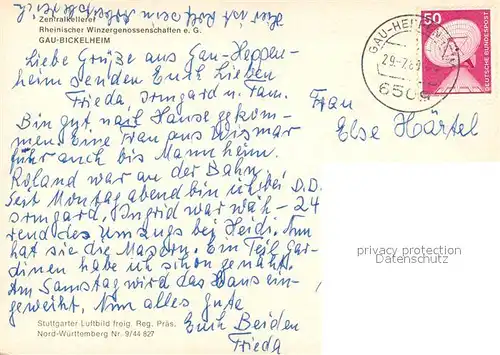 Zentralkellerei
Rheinischer Winzergenossenschaften e. G.
GAU-BICKELHEIM
Liebe Grüße aus Gau-Heppen-
heim senden Euch Lieben
Frieda, Irmgard u. Fam.
Bin gut nach Hause gekom-
men. Eine Frau aus Wismar
fuhr auch bis Mannheim.
Roland war an der Bahn,
Seit Montag abend bin ich bei D.D.
Irmgard. Ingrid war wäh- 24
rend des Umzugs bei Heidi. Nun
hat sie die Masern. Ein Teil Gar-
dinen habe ich schon genäht.
Am Samstag wird das Haus ein-
geweiht. Nun alles Gute
Euch Beiden
Frieda
Stuttgarter Luftbild freig. Reg. Präs.
Nord-Württemberg Nr. 9/44 827
50
DEUTSCHE BUNDESPOST
Frau
Else Härtel
privacy protection
Datenschutz